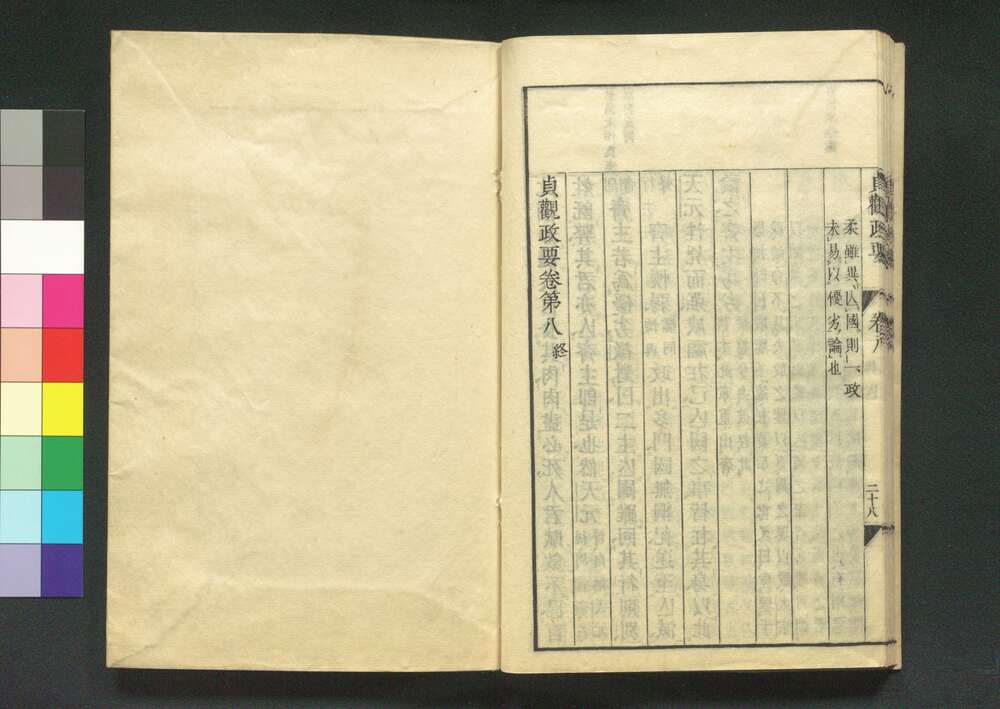 貞觀政要
卷八
二十八
柔雖異、亾國則一、政
未易以優劣論也
貞觀政要卷第八終